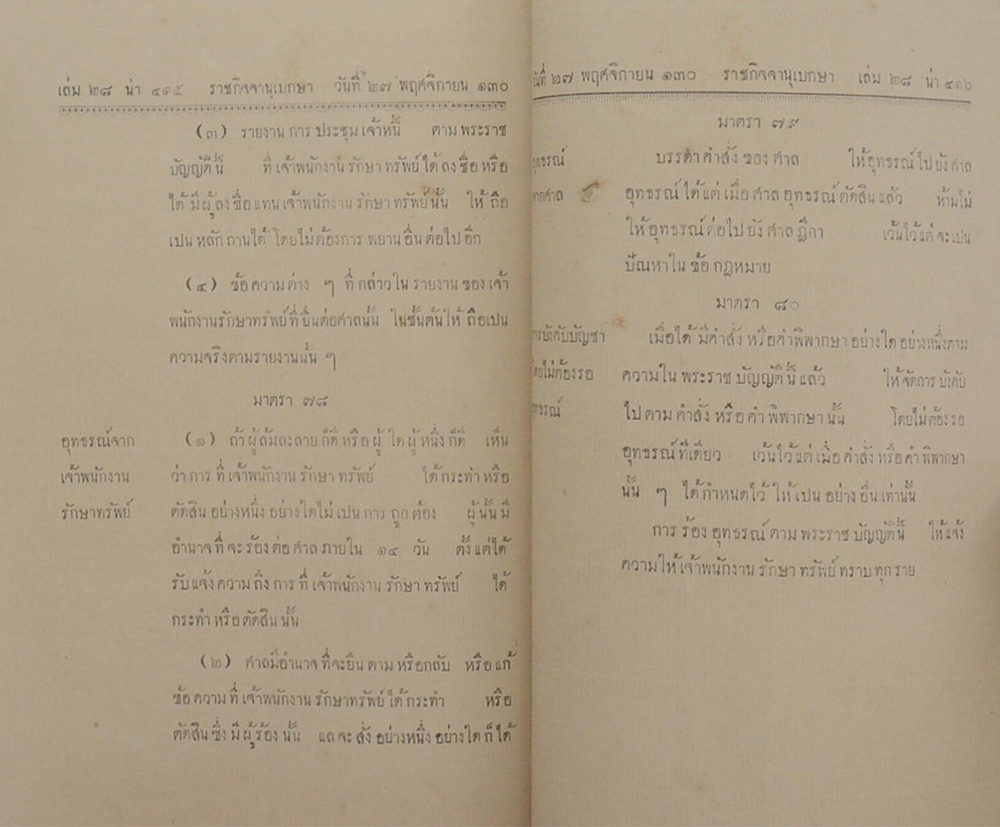 เล่ม ๒๘ น่า ๔๑๕ ราชกิจจานุเบกษา วันที่ ๒๗ พฤศจิกายน ๑๓๐
(๓) รายงาน การ ประชุม เจ้าหนี้ ตาม พระราช
บัญญัตินี้ ที่ เจ้าพนักงาน รักษา ทรัพย์ ได้ ลง ชื่อ หรือ
ได้ มี ผู้ ลง ชื่อ แทน เจ้าพนักงาน รักษา ทรัพย์ นั้น ให้ ถือ
เปน หลัก ถาน ได้ โดย ไม่ ต้อง การ พยาน อื่น ต่อ ไป อีก
(๔) ข้อ ความ ต่าง ๆ ที่ กล่าว ใน รายงาน ของ เจ้า
พนักงาน รักษา ทรัพย์ ที่ ยื่น ต่อ ศาล นั้น ในชั้นต้น ให้ ถือ เปน
ความ จริง ตาม รายงาน นั้น ๆ
มาตรา ๗๘
อุทธรณ์จาก (๑) ถ้า ผู้ ล้มละลาย ก็ดี หรือ ผู้ ใด ผู้ หนึ่ง ก็ดี เห็น
เจ้าพนักงาน ว่า การ ที่ เจ้าพนักงาน รักษา ทรัพย์ ได้ กระทำ หรือ
รักษาทรัพย์ ตัดสิน อย่าง หนึ่ง อย่าง ใด ไม่ เปน การ ถูก ต้อง ผู้ นั้น มี
อำนาจ ที่ จะ ร้อง ต่อ ศาล ภายใน ๑๔ วัน ตั้ง แต่ ได้
รับ แจ้ง ความ ถึง การ ที่ เจ้าพนักงาน รักษา ทรัพย์ ได้
กระทำ หรือ ตัดสิน นั้น
(๒) ศาล มี อำนาจ ที่ จะ ยืน ตาม หรือ กลับ หรือ แก้
ข้อ ความ ที่ เจ้าพนักงาน รักษา ทรัพย์ ได้ กระทำ หรือ
ตัดสิน ซึ่ง มี ผู้ ร้อง นั้น แล จะ สั่ง อย่าง หนึ่ง อย่าง ใด ก็ ได้
วันที่ ๒๗ พฤศจิกายน ๑๓๐ ราชกิจจานุเบกษา เล่ม ๒๘ น่า ๔๑๖
มาตรา ๗๙
อุทธรณ์ บรรดา คำ สั่ง ของ ศาล ให้ อุทธรณ์ ไป ยัง ศาล
จากศาล อุทธรณ์ ได้ แต่ เมื่อ ศาล อุทธรณ์ ตัดสิน แล้ว ห้าม ไม่
ให้ อุทธรณ์ ต่อ ไป ยัง ศาล ฎีกา เว้น ไว้ แต่ จะ เปน
ปัญหา ใน ข้อ กฎหมาย
มาตรา ๘๐
การบังคับบัญชา เมื่อ ได้ มี คำ สั่ง หรือ คำ พิพากษา อย่าง ใด อย่าง หนึ่ง ตาม
โดยไม่ต้องรอ ความ ใน พระราช บัญญัติ นี้ แล้ว ให้ จัด การ บังคับ
อุทธรณ์ ไป ตาม คำ สั่ง หรือ คำ พิพากษา นั้น โดย ไม่ ต้อง รอ
อุทธรณ์ ทีเดียว เว้น ไว้ แต่ เมื่อ คำ สั่ง หรือ คำ พิพากษา
นั้น ๆ ได้ กำหนด ไว้ ให้ เปน อย่าง อื่น เท่า นั้น
การ ร้อง อุทธรณ์ ตาม พระราช บัญญัติ นี้ ให้ แจ้ง
ความ ให้ เจ้าพนักงาน รักษา ทรัพย์ ทราบ ทุก ราย